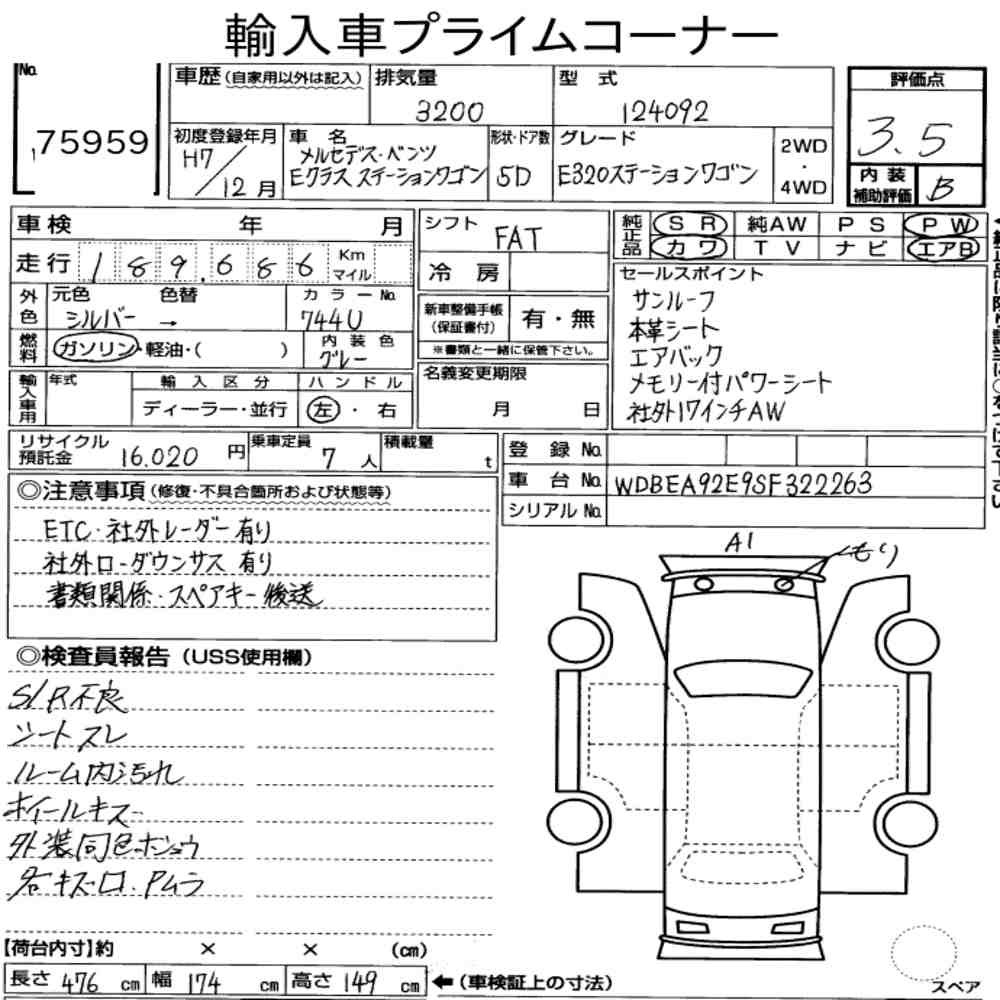 輸入車プライムコーナー
No.
75959
車歴(自家用以外は記入)
排気量
3200
型式
124092
評価点
3.5
初度登録年月
H7/12月
車名
メルセデス・ベンツ
Eクラス ステーションワゴン
形状・ドア数
5D
グレード
E320ステーションワゴン
2WD
・
4WD
内装
補助評価
B
車検 年 月
走行 189.686 Km
マイル
外色
元色 色替
シルバー →
カラーNo.
744U
燃料
ガソリン・軽油・( )
内装色
グレー
輸入車用
年式
輸入区分
ディーラー・並行
ハンドル
左・右
シフト
FAT
冷房
新車整備手帳
(保証書付)
有・無
※書類と一緒に保管下さい。
名義変更期限
月 日
純正品
SR 純AW PS PW
カワ TV ナビ エアB
セールスポイント
サンルーフ
本革シート
エアバック
メモリー付パワーシート
社外17インチAW
リサイクル
預託金
16.020 円
乗車定員
7 人
積載量
t
登録No.
車台No.
WDBEA92E9SF322263
シリアルNo.
◎注意事項(修復・不具合箇所および状態等)
ETC・社外レーダー有り
社外ローダウンサス有り
書類関係・スペアキー後送
◎検査員報告(USS使用欄)
S/R不良
シートスレ
ルーム内汚れ
ホイールキズ
外装同色ホシュウ
各キズ・ロ・Pムラ
A1
くもり
【荷台内寸】約 × × (cm)
長さ 476 cm 幅 174 cm 高さ 149 cm ←(車検証上の寸法)
スペア